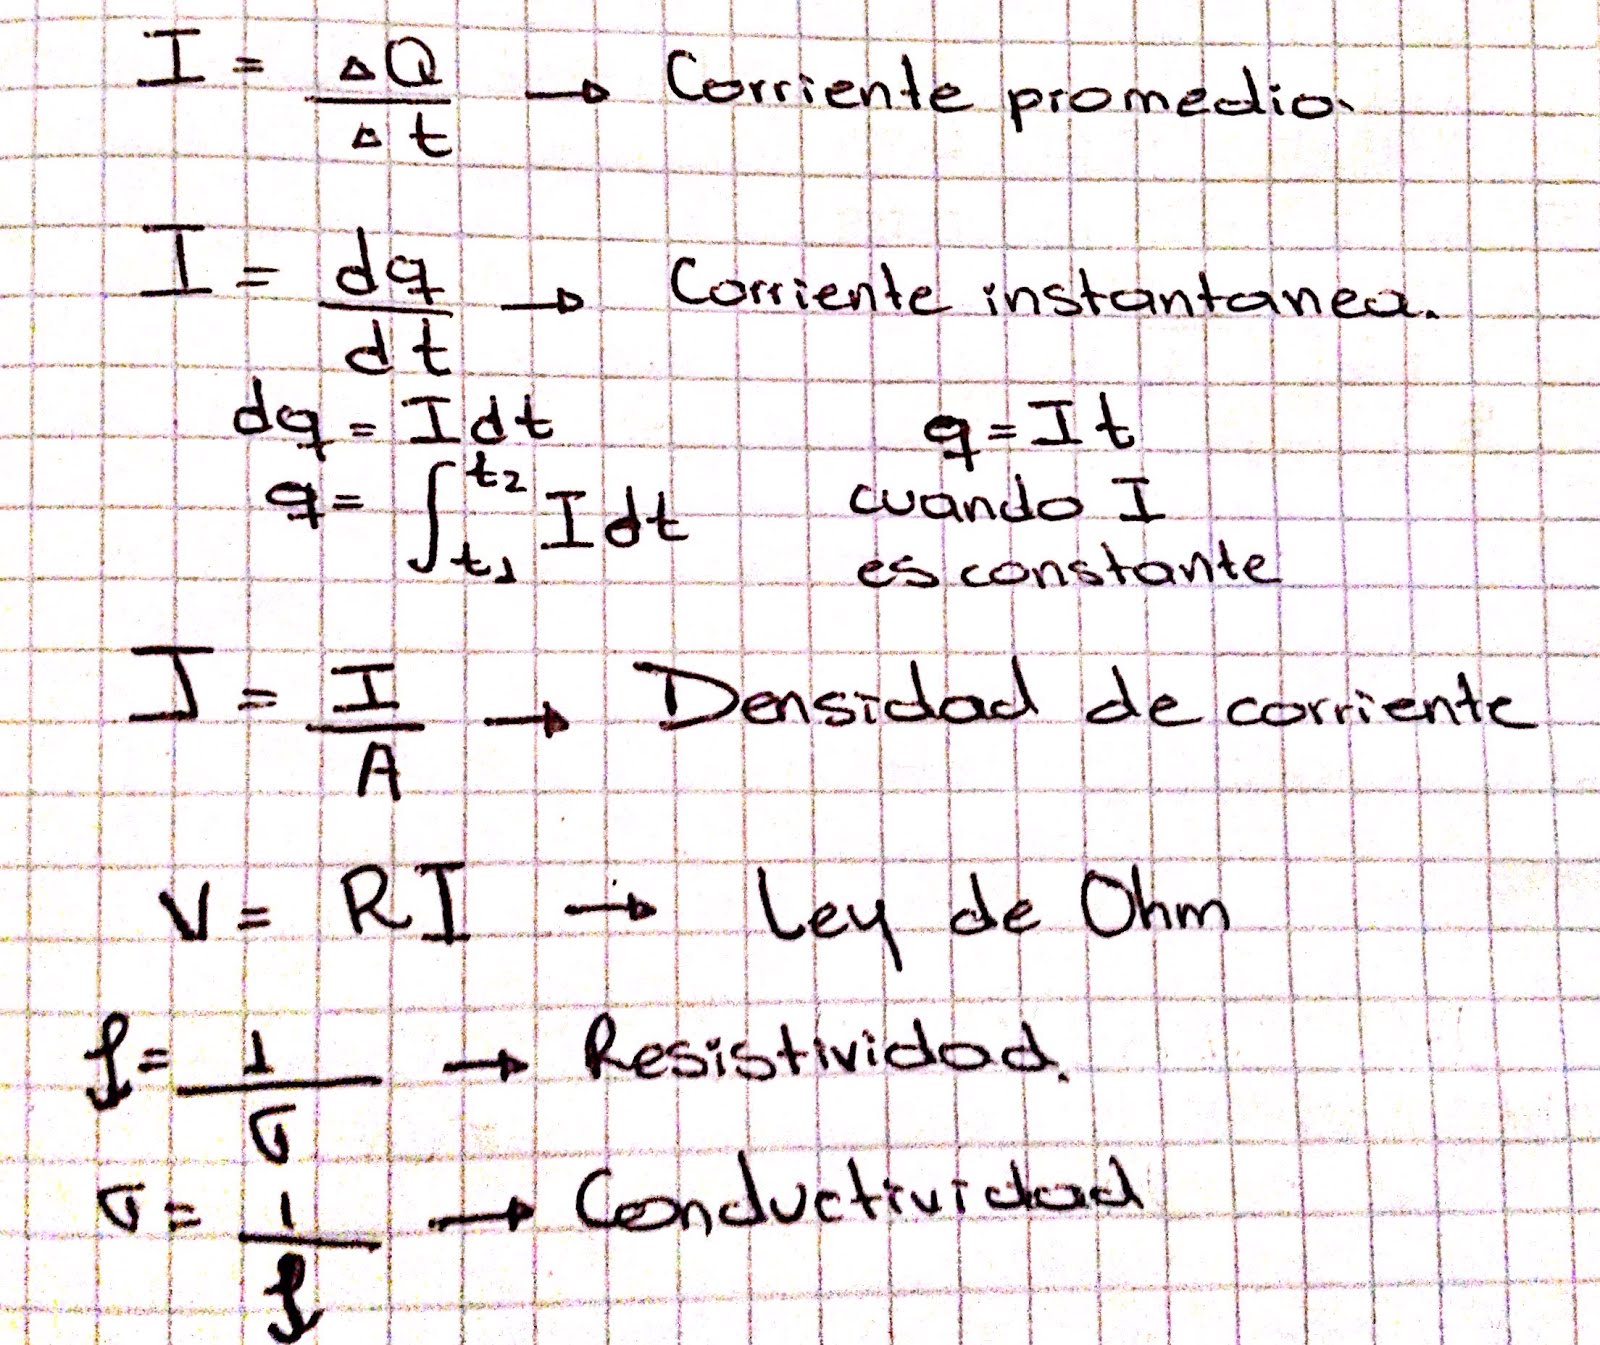 I = ΔQ / Δt → Corriente promedio.
I = dq / dt → Corriente instantanea.
dq = I dt
q = ∫ t1 t2 I dt
q = I t
cuando I
es constante
J = I / A → Densidad de corriente
V = R I → Ley de Ohm
ρ = 1 / σ → Resistividad.
σ = 1 / ρ → Conductividad